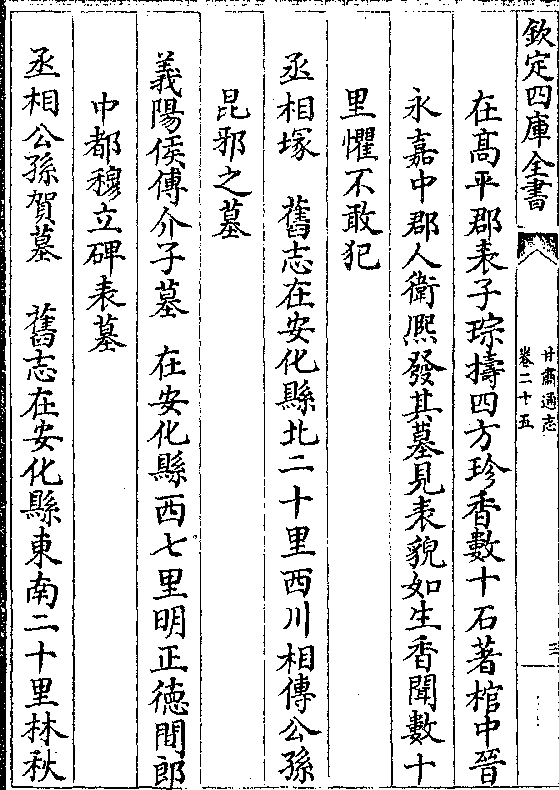 欽定四庫全書
甘肅通志
卷二十五
三
在髙平郡表子琮擣四方珍香數十石著棺中晉
永嘉中郡人衛熈發其墓見表貌如生香聞數十
里懼不敢犯
丞相塚　舊志在安化縣北二十里西川相傳公孫
昆邪之墓
義陽侯傅介子墓　在安化縣西七里明正徳間郎
中都穆立碑表墓
丞相公孫賀墓　舊志在安化縣東南二十里林秋